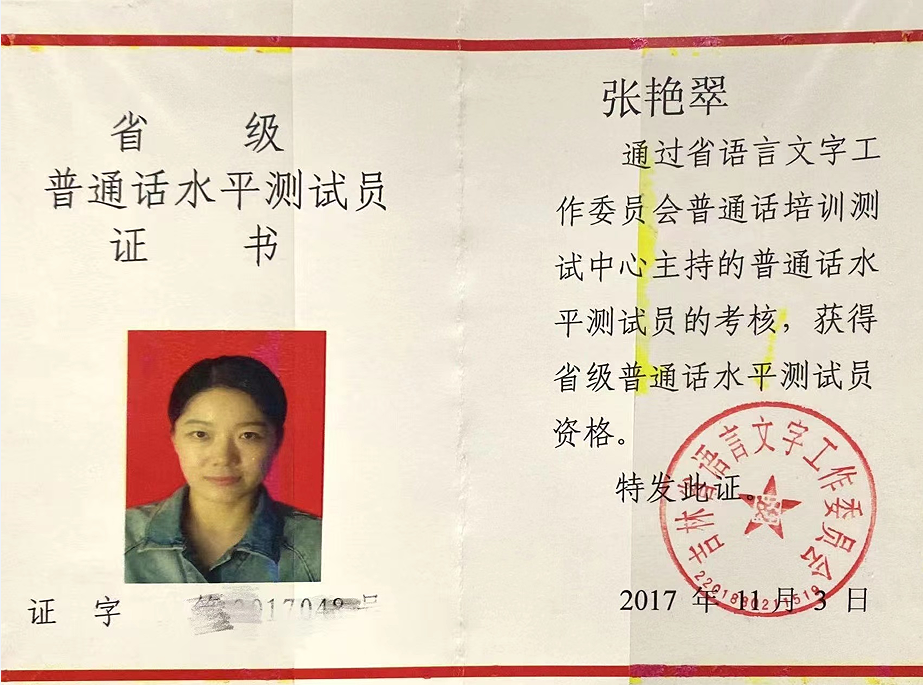 省 级
普通话水平测试员
证 书
证 字 第2017048号
张艳翠
通过省语言文字工
作委员会普通话培训测
试中心主持的普通话水
平测试员的考核，获得
省级普通话水平测试员
资格。
特发此证。
吉林省语言文字工作委员会
2017 年 11 月 3 日